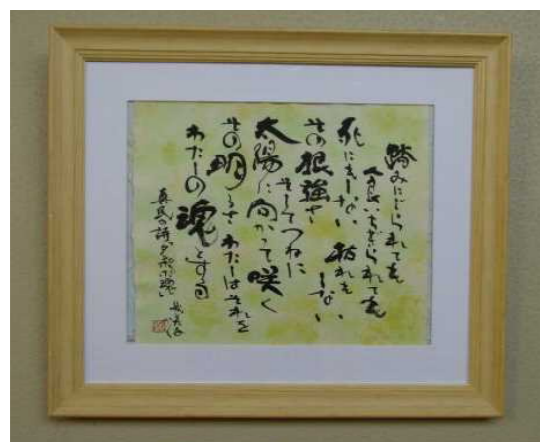 踏みにじられても
食いちぎられても
死にもしない 枯れもしない
その根強さ
そしてつねに
太陽に向かって咲く
その明るさ わたしはそれを
わたしの魂とする
真民の詩「タンポポ魂」